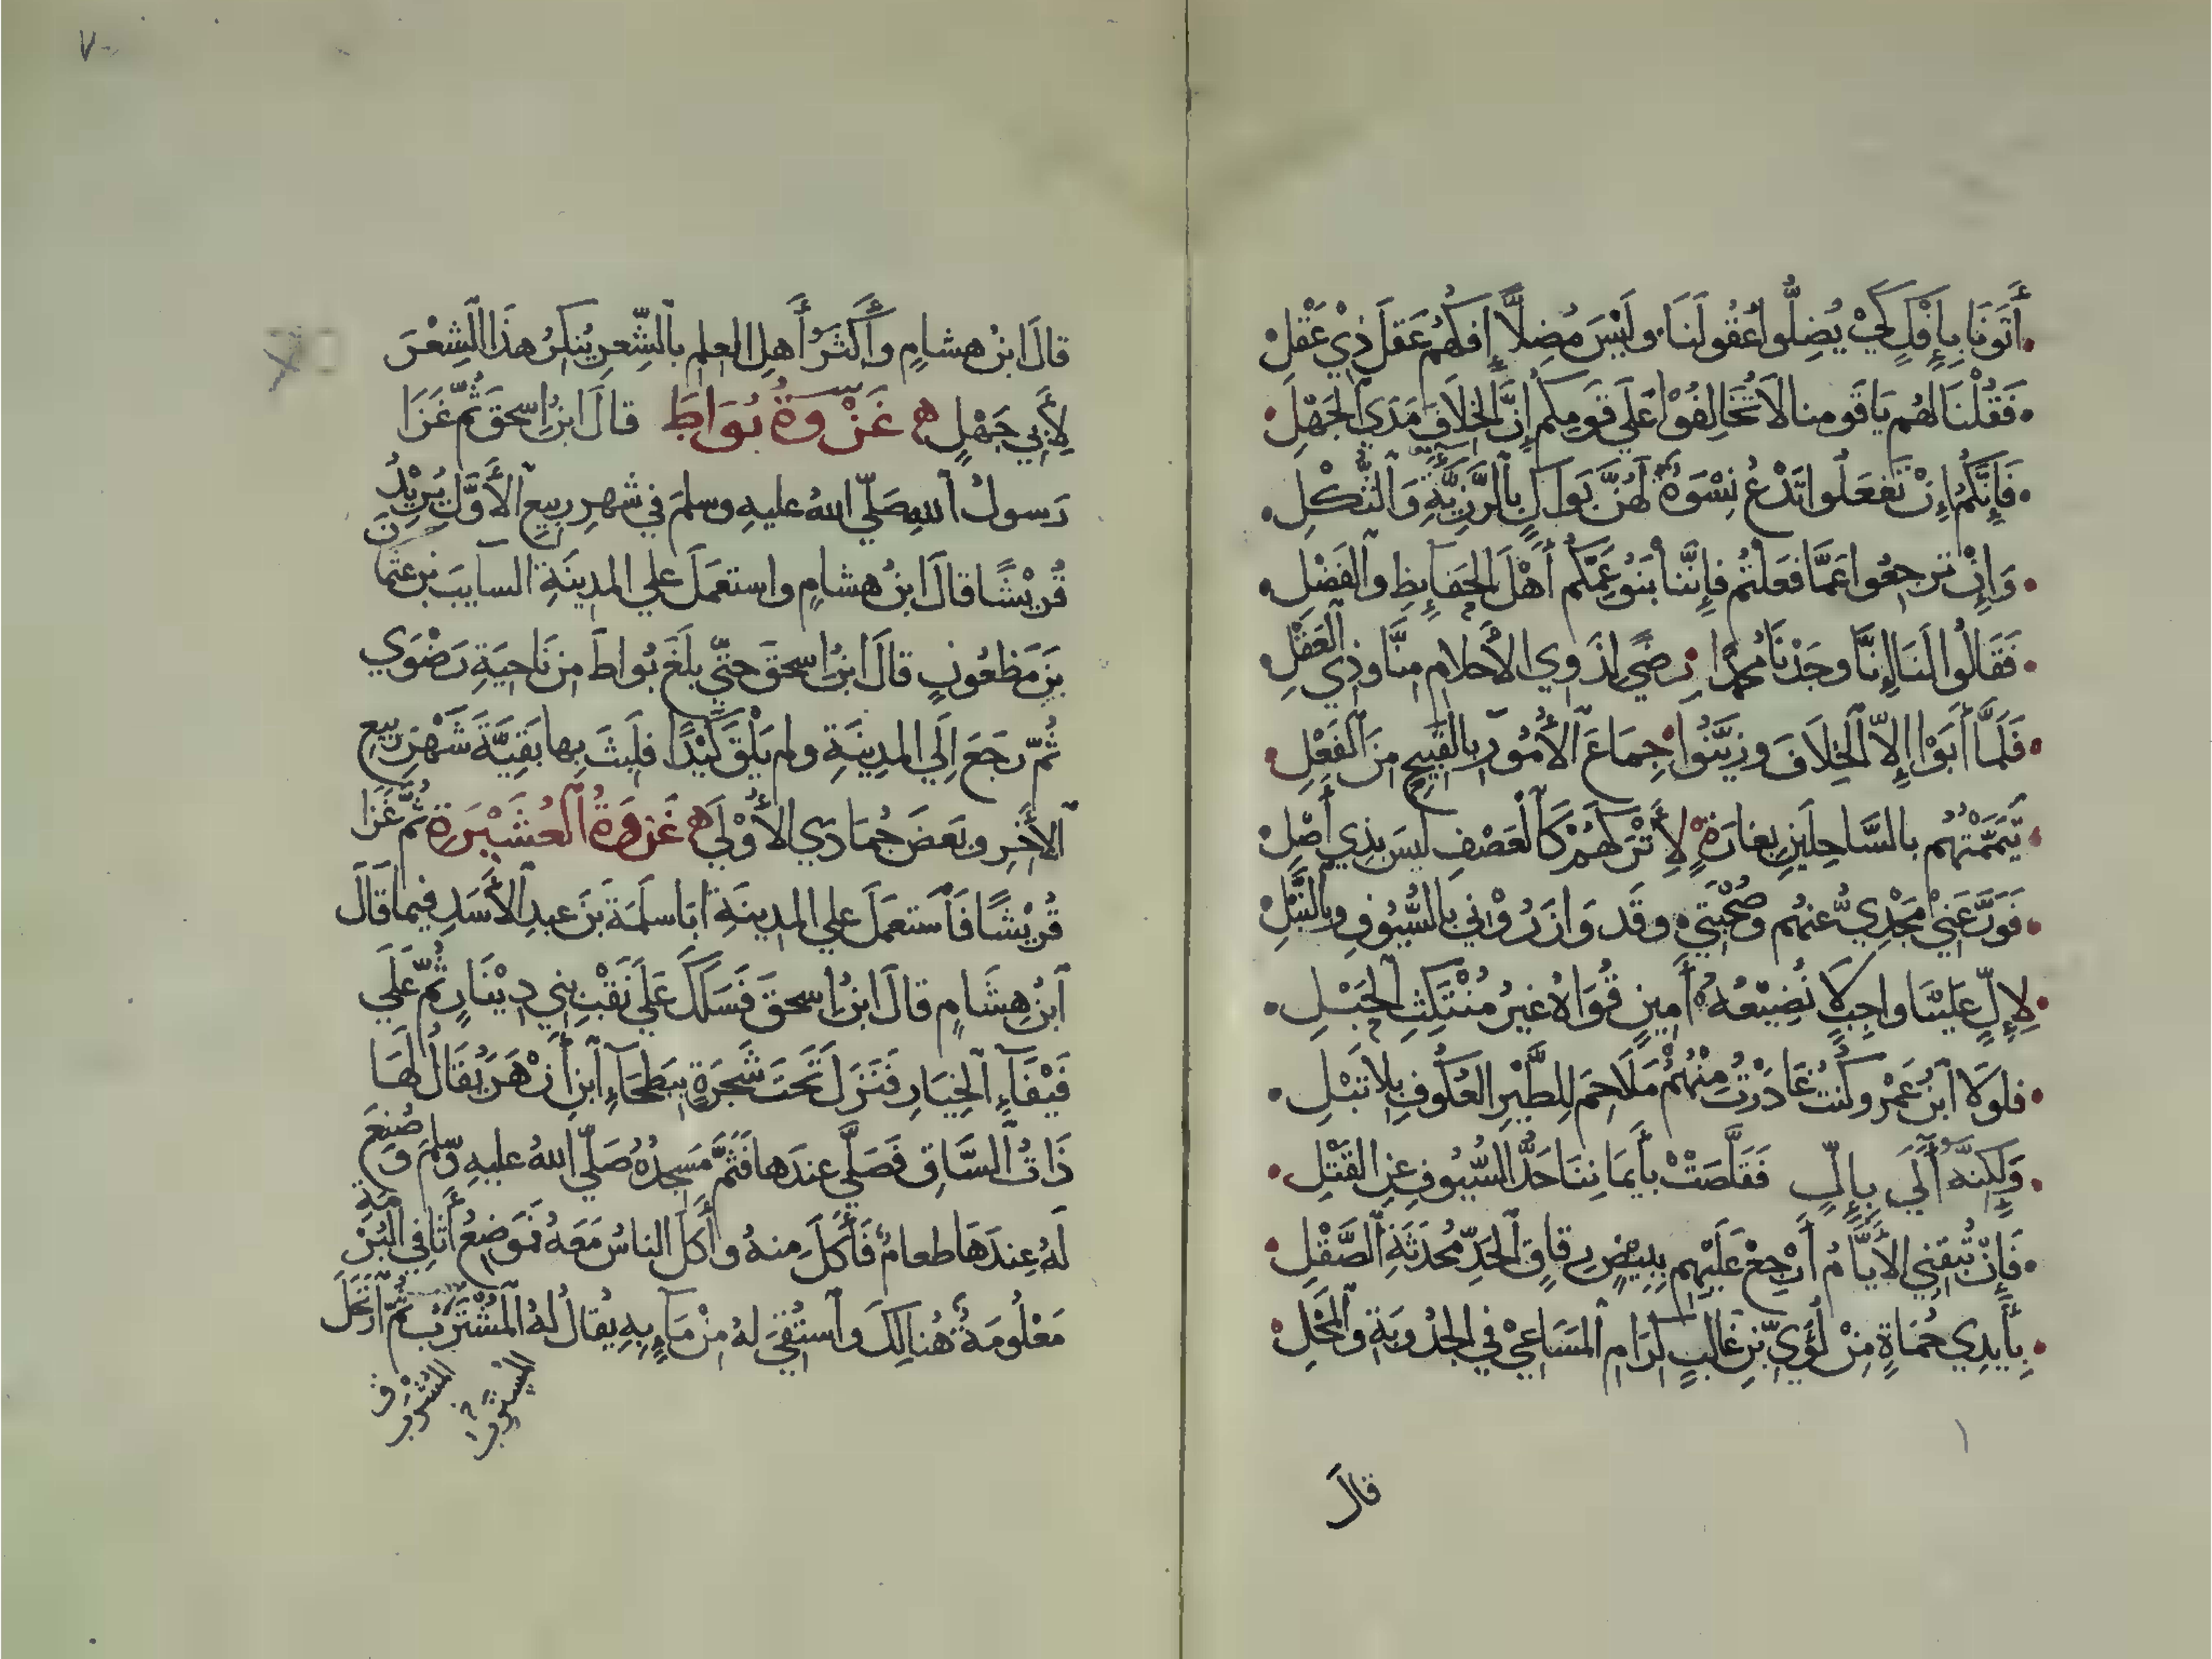 أَتَوْنَا بِإِفْكٍ كَيْ يُضِلُّوا عُقُولَنَا وَلَيْسَ مُضِلًّا إِفكُهُمْ عَقلَ ذِيْ عَقْلِ
فَقُلْنَا لهُم يَا قَومنا لَا تُخَالِفُوْا عَلَي قَومِكم إِنَّ الخِلَافَ مَدَي الجَهْلِ
فَإِنَّكُمُ إِنْ تَفعَلُوا تَدْعُ نِسْوَةٌ لهُنَّ بَوَاكٍ بِالرَّزِيَّةِ وَالثُّكْلِ
وَإِنْ تَرجِعُوا عَمَّا فَعَلْتُم فإِنَّنا بَنُو عَمِّكُم أَهْلَ الحَفَايِظِ والفَضْلِ
فَقَالُوا لَنَا إِنَّا وجَدْنَا مُحَمَّدًا رِضًي لِذَوِي الأَحلامِ مِنَّا وذِي العَقْلِ
فَلَمَّا أَبَوْا إِلاّ الخِلَافَ وزَيَّنُوا جِمَاعَ الأُمُورِ بالقَبِيحِ مِنَ الفِعْلِ
تَيَمَّمْتُهُم بالسَّاحِلَينِ بِغارَةٍ لِأَتْرُكَهُمْ كَالعَصْفِ لَيسَ بِذِي أَصْلِ
فَوَرَّعَنِيْ مَجْدِيُّ عنهُم وصُحْبَتِي وقَد وَازَرُوْنِي بِالسُّيُوفِ وبِالنَّبْلِ
لِإِلٍّ عَلَيْنَا واجِبٍ لَا نُضِيْعُهُ أَمِينٍ قُوَاهُ غيرُ مُنْتَكِثِ الحَبْلِ
فلَولَا ابنُ عَمْرٍو كنتُ غَادَرْتُ مِنْهُمُ مَلَاحِمَ لِلطَّيْرِ العُكُوفِ بِلا تَبْلِ
وَلَكِنَّهُ أٓلَي بِإِلٍّ فَقَلَّصَتْ بِأَيمَانِنَا حَدُّ السُّيُوفِ عنِ القَتْلِ
فَإِنْ تُبقِنِي الأَيَّامُ أَرْجِعْ عَلَيْهِم بِبِيْضٍ رِقاقِ الحَدِّ مُحْدَثَةِ الصَّقْلِ
بِأَيدِي حُمَاةٍ مِنْ لُؤَيِّ بنِ غَالِبٍ كِرَامِ المَسَاعِيْ فِي الجُدُوبَةِ والمَحْلِ
قالَ
٧٠
قالَ ابنُ هشامٍ وأَكثَرُ أَهلِ العِلمِ بالشِّعرِ يُنكِرُ هذَا الشِّعْرَ
لأَبِي جَهْلٍ غَزْوَةُ بُوَاطَ قالَ ابنُ إِسحقَ ثُمَّ غَزَا
رَسولُ اللهِ صَلّي اللهُ عليهِ وسلمَ في شَهرِ ربِيعٍ الأَوَّلِ يُرِيْدُ
قُرَيْشًا قالَ ابنُ هشامٍ واستعمَلَ علي المدِينَةِ السايبَ بنَ عثمانَ
بنِ مَظعُونٍ قالَ ابنُ إِسحقَ حتّي بلَغَ بُواطَ مِن نَاحِيَةِ رَضْوَي
ثُمّ رجَعَ إِلَي المدِينَةِ ولم يَلْقَ كَيْدًا فلَبِثَ بِها بَقِيَّةَ شَهْرِ رَبِيعٍ
الآخِرِ وبَعضَ جُمَادَي الأُوْلَي غَزوَةُ العُشَيْرَةِ ثُمّ غَزا
قُرَيْشًا فَاستعمَلَ علي المدِينَةِ أَبَا سلَمَةَ بنَ عبدِ الأَسَدِ فيما قالَ
ابنُ هِشَامٍ قالَ ابنُ إِسحقَ فَسَلَكَ عَلَي نَقْبِ بَنِي دِيْنَارٍ ثُمّ عَلَي
فَيْفَآءِ الخِيَارِ فَنَزَلَ تَحتَ شَجَرَةٍ بِبَطحَآءِ ابنِ أَزْهَرَ يُقَالُ لَهَا
ذَاتُ السَّاقِ فَصَلَّي عِندَها فَثَمَّ مَسجِدُهُ صَلّي اللهُ عليهِ وسلم وصُنِعَ
لَهُ عِندَهَا طعامٌ فَأَكَلَ مِنهُ وأَكَلَ الناسُ مَعَهُ فَمَوضِعُ أَثَافِي البُرْمَةِ
مَعْلُومَةٌ هُنالِكَ واستُقِيَ لهُ مِنْ مَآءٍ بِهِ يُقالُ لهُ المُشْتَرِبُ ثُمّ ارتَحَلَ